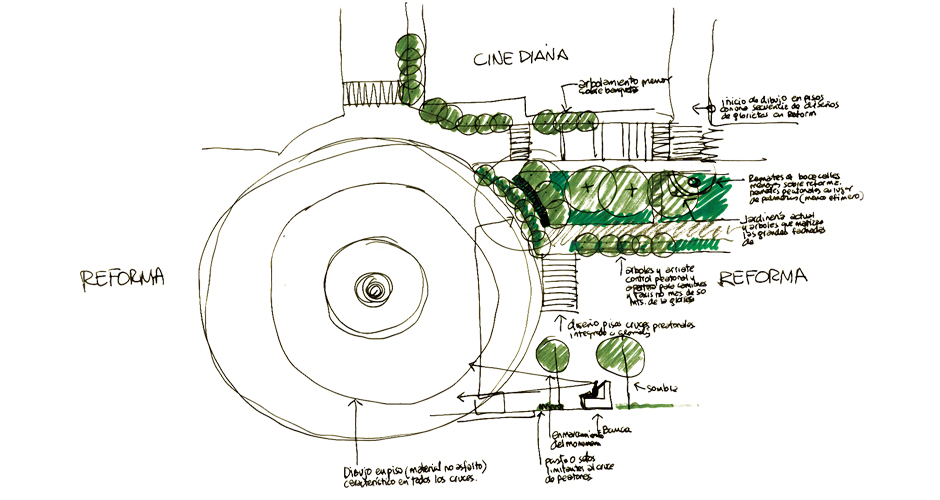 CINE DIANA
arbolamiento menor
sobre banqueta
inicio de dibujo en pisos
como secuencia de diseños
de glorietas en Reform
Remates de bocacalles
menores sobre reforma
peatonales en lugar
de palmeras (menos efimero)
Jardinería actual
y arboles que matizan
las grandes fachadas
de
REFORMA
REFORMA
arboles y arriate
control peatonal y
apertura para camiones
y taxis no más de 50
mts. de la glorieta
diseño pisos cruces peatonales
integrado a
sombra
Banca
enmarcamiento
del monumen
pasto o setos
limitantes al cruce
de peatones
Dibujo en piso (material no asfalto)
característico en todos los cruces.